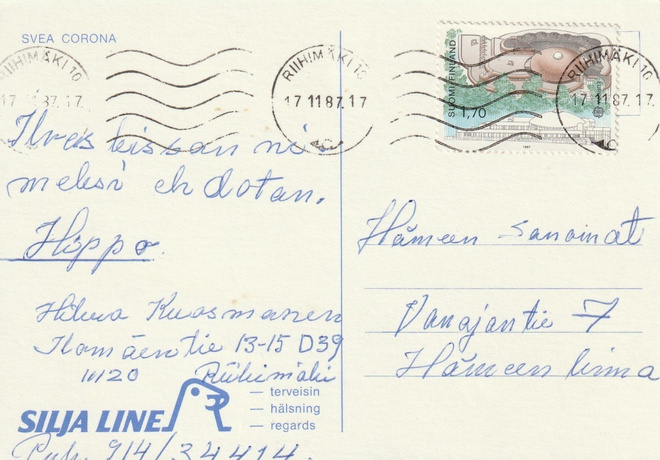 SVEA CORONA
RIIHIMÄKI 10
17 11 87. 17
RIIHIMÄKI 10
17 11 87. 17
RIIHIMÄKI 10
17 11 87. 17
SUOMI-FINLAND
1,70
1987
Ilves kissan ni
meksi ehdotan.
Hippo.
Hilma Kuosmanen
Ilomäentie 13-15 D39
11120 Riihimäki
SILJA LINE
— terveisin
— hälsning
— regards
Puh. 914/34414.
Hämeen Sanomat
Vanajantie 7
Hämeenlinna